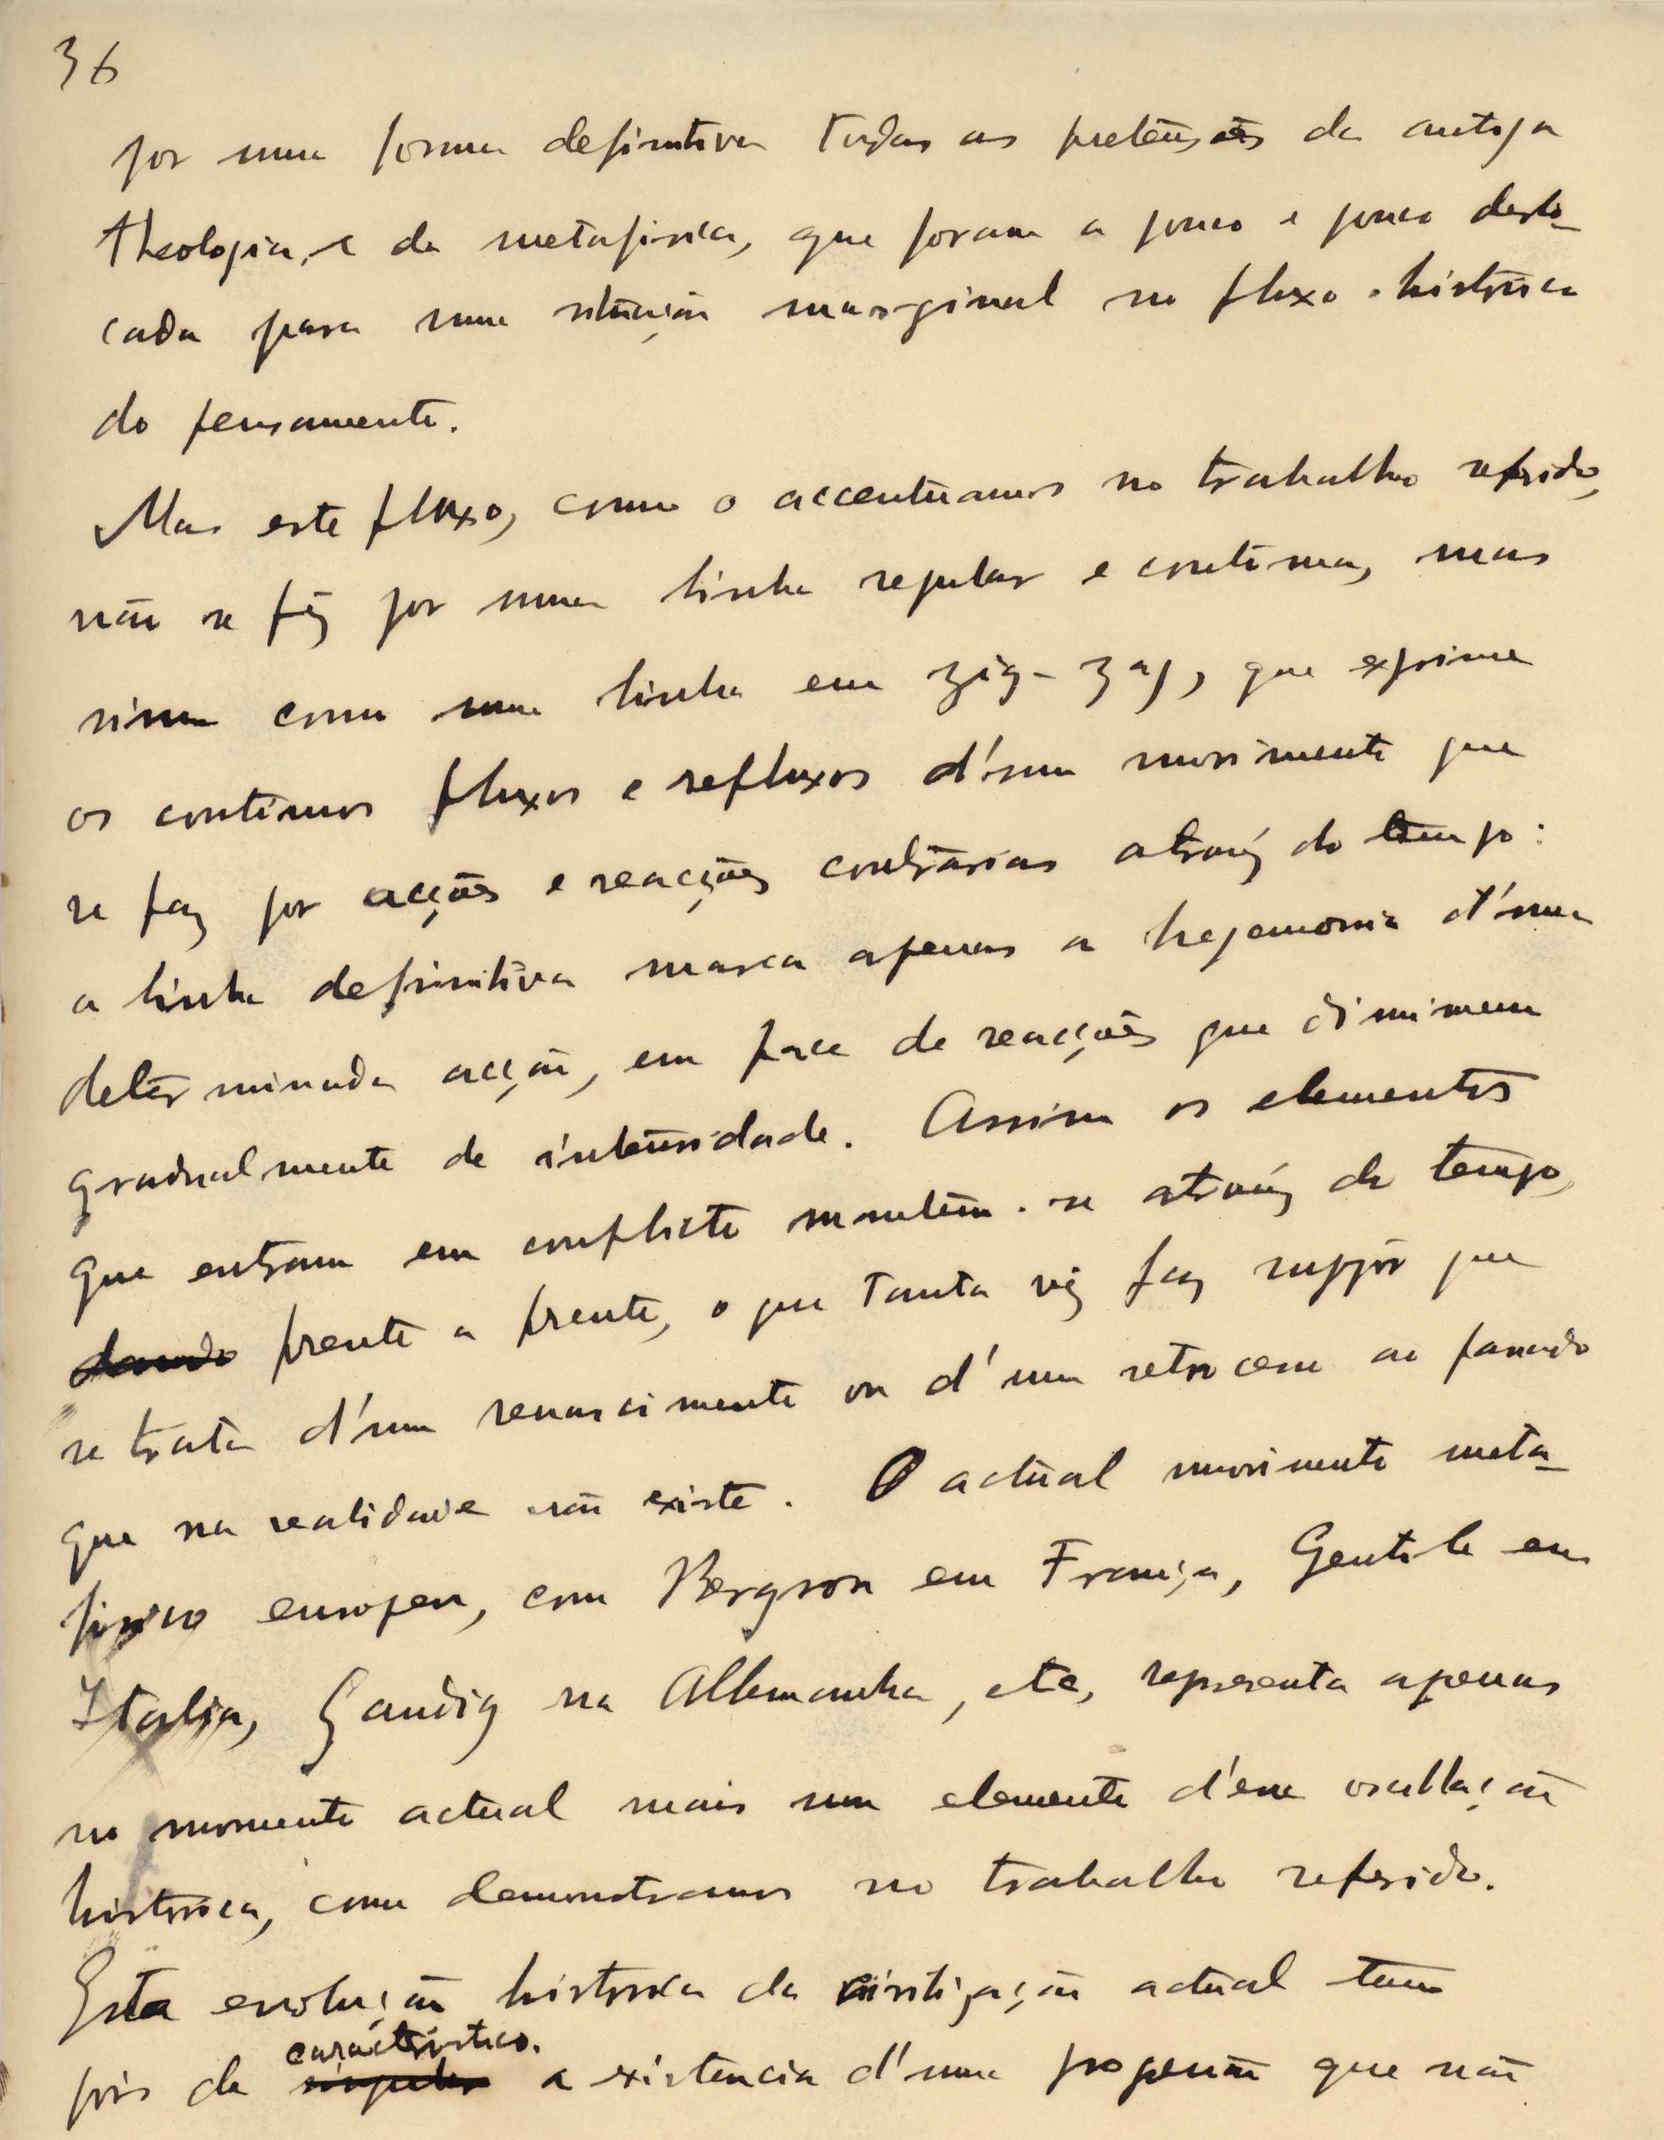 36
por uma forma definitiva todas as pretensões da antiga
theologia, e da metafisica, que foram a pouco e pouco deslo-
cada para uma situação marginal no fluxo historico
do pensamento.
Mas este fluxo, como o accentuamos no trabalho referido,
não se fêz por uma linha regular e continua, mas
sim como uma linha em zig-zag, que exprime
os continuos fluxos e refluxos d'um movimento que
se faz por acções e reacções contrarias através do tempo:
a linha definitiva marca apenas a hegemonia d'uma
determinada acção, em face de reacções que diminuem
gradualmente de intensidade. Assim os elementos
que entram em conflicto mantêm-se através do tempo,
dando frente a frente, o que tanta vêz faz suppôr que
se trata d'um renascimento ou d'um retrocesso ao passado
que na realidade não existe. O actual movimento meta-
fisico europeu, com Bergson em França, Gentile em
Italia, Gaudig na Allemanha, etc, representa apenas
no momento actual mais um elemento d'essa oscillação
historica, como demonstramos no trabalho referido.
Esta evolução historica da civilização actual tem
caracteristico.
pois de singular a existencia d'uma progressão que não